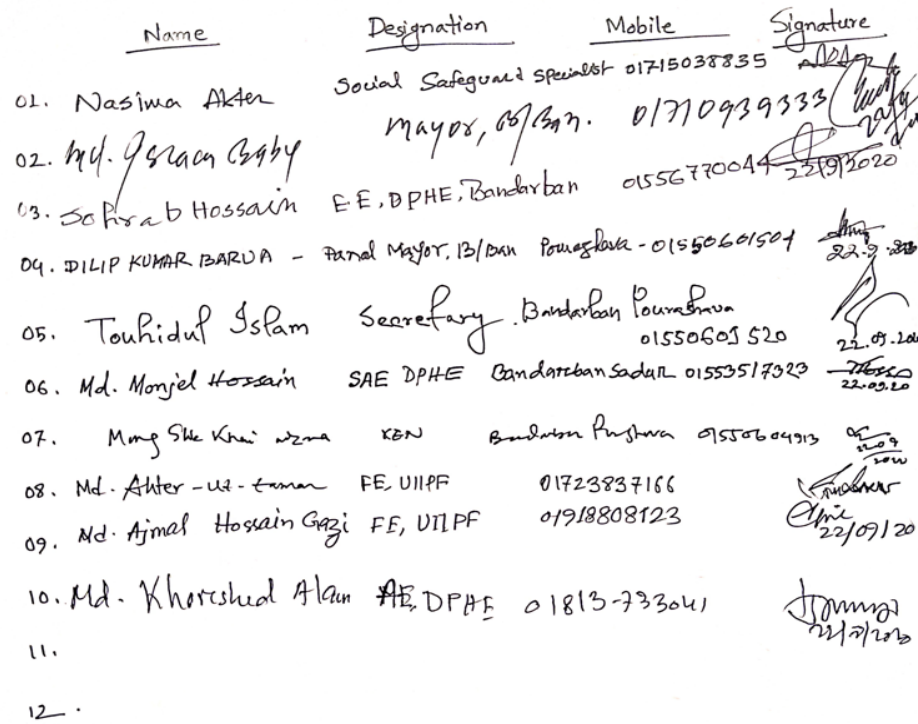 Name Designation Mobile Signature
01. Nasima Akter Social Safeguard Specialist 01715038835
02. Md. Islam Baby Mayor, B/Ban. 01710939333
03. Sohrab Hossain E.E, DPHE, Bandarban 01556770044 22/9/2020
04. DILIP KUMAR BARUA - Panal Mayor, B/Ban Pourashava - 01550601504 22.9.2020
05. Touhidul Islam Secretary. Bandarban Pourashava
01550601520 22.09.20
06. Md. Monjel Hossain SAE DPHE Bandarban Sadar 01553517323 22.09.20
07. Mong XEN Pourashava 01550604913 22.09
2020
08. Md. Akter-uz-zaman FE, UIIPF 01723837166
09. Md. Ajmal Hossain Gazi FE, UIIPF 01918808123 22/09/20
10. Md. Khorshed Alam AE, DPHE 01813-733041
11.
12.